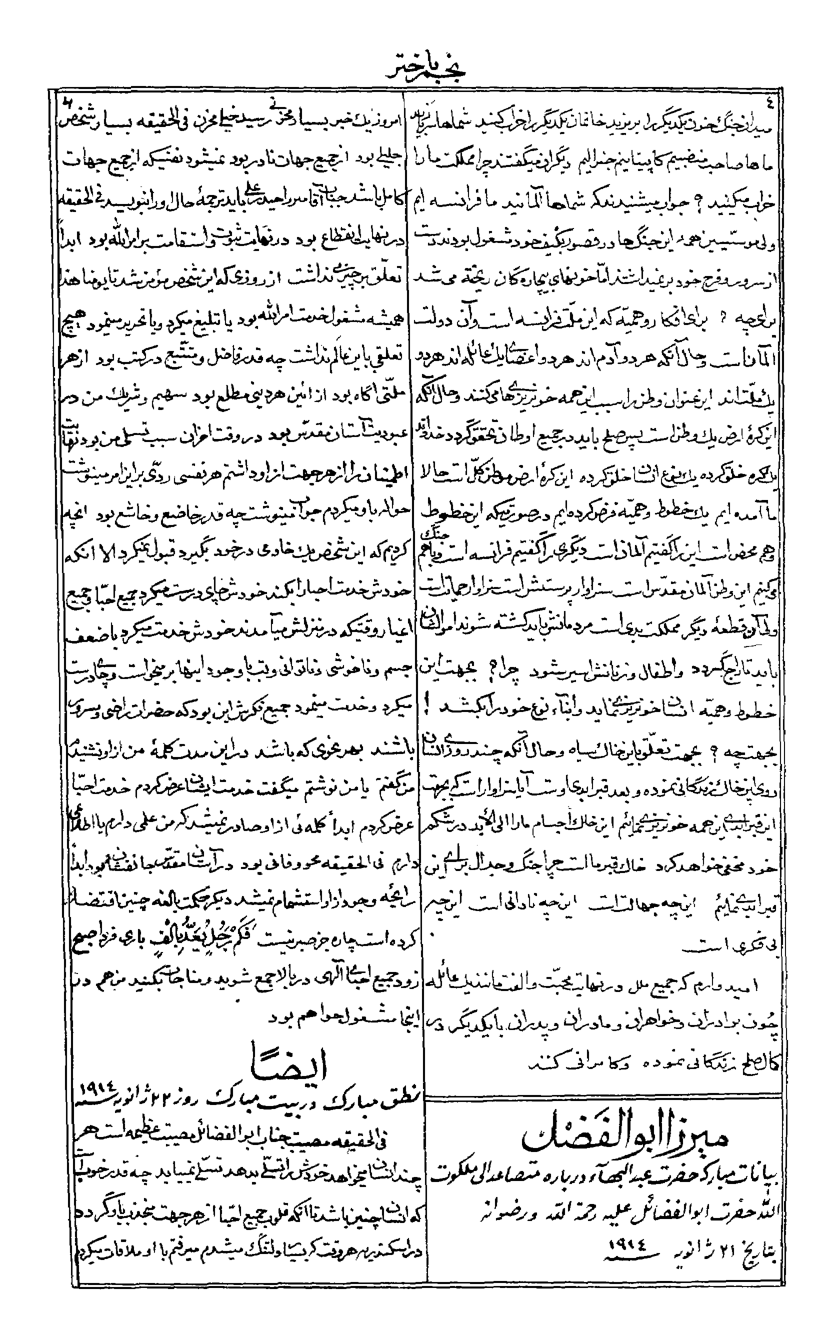 نجم باختر
٤
میدان جنگ خون یکدیگر را بریزید خانمان یکدیگر را خراب کنید شماها سربازید
ماها صاحب منصبیم کاپیتانیم جنرالیم دیگران میگفتند چرا مملکت ما را
خراب میکنید ؟ جواب میشنیدند که شماها آلمانید ما فرانسه ایم
ولی موسسین همهٔ این جنگها در قصور بکیف خود مشغول بودند دست
از سرور و فرح خود برنمیداشتند امّا خونهای بیچاره گان ریخته می شد
برای چه ؟ برای افکار وهمیّه که این ملّت فرانسه است و آن دولت
آلمان است و حال آنکه هر دو آدم اند هر دو اعضای یک عائله اند هر دو
یک ملّت اند این عنوان وطن را سبب این همه خونریزی ها میکنند و حال آنکه
این کرهٔ ارض یک وطن است پس صلح باید در جمیع اوطان تحقق گردد خداوند
یک کره خلق کرده یک نوع انسان خلق کرده این کرهٔ ارض موطن کلّ است حالا
ما آمده ایم یک خطوط وهمیّه فرض کرده ایم در صورتیکه این خطوط
وهم محض است این را گفتیم آلمان است دیگری را گفتیم فرانسه است و با هم جنگ
می کنیم این وطن آلمان مقدّس است سزاوار پرستش است سزاوار حمایت است
ولی آن قطعهٔ دیگر مملکت بدی است مردمانش باید کشته شوند اموالشان
باید تاراج گردد و اطفال و زنانش اسیر شود چرا ؟ بجهت این
خطوط وهمیّه انسان خونریزی نماید و ابناء نوع خود را بکشد !
بجهت چه ؟ بجهت تعلّق باین خاک سیاه و حال آنکه چند روزی انسان
روی این خاک زندگانی نموده و بعد قبر ابدی اوست آیا سزاوار است که بجهت
این قبر ابدی این همه خونریزی نمائیم این خاک اجسام ما را الی الأبد در شکم
خود مخفی خواهد کرد خاک قبر ما است چرا جنگ و جدال برای این
قبر ابدی نمائیم این چه جهالت است این چه نادانی است این چه
بی فکری است
امیدوارم که جمیع ملل در نهایت محبّت و الفت مانند یک عائله
چون برادران و خواهران و مادران و پدران با یکدیگر در
کمال صلح زندگانی نموده و کامرانی کنند
میرزا ابوالفَضْل
بیانات مبارکه حضرت عبدالبهآء درباره متصاعد الی ملکوت
اللّه حضرت ابوالفضائل علیه رحمة اللّه و رضوانه
بتاریخ ۲۱ ژانویه سنه ۱۹۱٤
امروز یک خبر بسیار محزنی رسید خیلی محزن فی الحقیقه بسیار شخص
جلیلی بود از جمیع جهات نادر بود نمیشود نفسی که از جمیع جهات
کامل باشد جناب آقا میرزا حیدر علی باید ترجمهٔ حال او را بنویسد فی الحقیقه
در نهایت انقطاع بود در نهایت ثبوت و استقامت بر امراللّه بود ابداً
تعلّق بچیزی نداشت از روزی که این شخص مؤمن شد تا یومنا هذا
همیشه مشغول خدمت امراللّه بود یا تبلیغ میکرد و یا تحریر مینمود هیچ
تعلقی باین عالم نداشت چه قدر فاضل و متتبّع در کتب بود از هر
ملّتی آگاه بود از آئین هر دینی مطلع بود سهیم و شریک من در
عبودیت آستان مقدّس بود در وقت احزان سبب تسلی من بود نهایت
اطمینان را از هر جهت از او داشتم هر نفسی ردّی بر این امر مینوشت
حواله باو میکردم جواب مینوشت چه قدر خاضع و خاشع بود آنچه
کردیم که این شخص یک خادمی در خود بگیرد قبول نمیکرد الا آنکه
خودش خدمت احبا را بکند خودش چای درست میکرد جمیع احبّا و جمیع
اغیار وقتیکه در منزلش میآمدند خودش خدمت میکرد با ضعف
جسم و ناخوشی و ناتوانی و تب با وجود اینها بر میخواست و چای درست
میکرد و خدمت مینمود جمیع فکرش این بود که حضرات راضی و مسرور
باشند بهر نحوی که باشد در این مدت کلمهٔ من از او نشنیدم
من گفتم یا من نوشتم میگفت خدمت ایشان عرض کردم خدمت احبّا
عرض کردم ابداً کلمه ئی از او صادر نمیشد که من علمی دارم یا اطلاعی
دارم فی الحقیقه محو و فانی بود در آستان مقدّس جانفشان بود ابداً
رائحهٔ وجود از او استشمام نمیشد دیگر حکمت بالغه چنین اقتضا
کرده است چاره جز صبر نیست فَکَمْ رَجُلٍ یُعَدُّ بِأَلْفٍ باری فردا صبح
زود جمیع احبای الهی در بالا جمع شوید و مناجات بکنید من هم در
اینجا مشغول خواهم بود
ایضاً
نطق مبارک در بیت مبارک روز ۲۲ ژانویه سنه ۱۹۱٤
فی الحقیقه مصیبت جناب ابوالفضائل مصیبت عظیمه است هر
چند انسان میخواهد خودش را تسلّی بدهد تسلّی نمییابد چه قدر خوب است
که انسان چنین باشد تا آنکه قلوب جمیع احبّا از هر جهت منجذب باو گردد
در اسکندریه هر وقت که بسیار دلتنگ میشدم میرفتم با او ملاقات میکردم